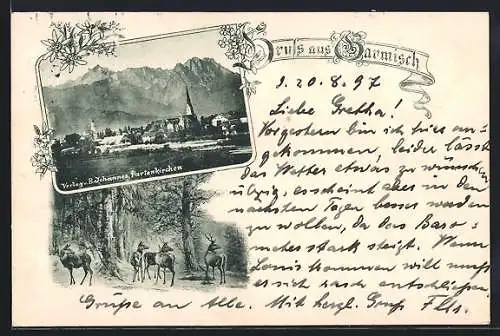 Gruss aus Garmisch
d. 20. 8. 97
Liebe Gretha!
Vorgestern bin ich hier an=
gekommen, leider lässt
das Wetter etwas zu wünschen
übrig, es scheint aber in den
nächsten Tagen besser werden
zu wollen, da das Baro=
meter stark steigt. Wenn
Louis kommen will muss
er sich rasch entschließen.
Grüße an Alle. Mit herzl. Gruß
Verlag v. B. Johannes, Partenkirchen